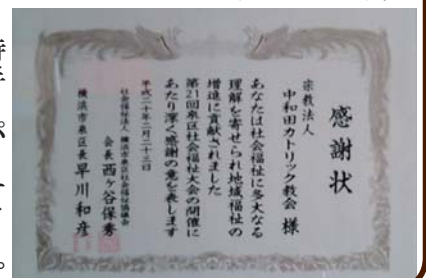 感謝状
宗教法人
中和田カトリック教会 様
あなたは社会福祉に多大なる
理解を寄せられ地域福祉の
増進に貢献されました
第21回泉区社会福祉大会の開催に
あたり深く感謝の意を表します
平成二十年二月二十三日
社会福祉法人 横浜市泉区社会福祉協議会
会長 西ヶ谷保秀
横浜市泉区長 早川和彦